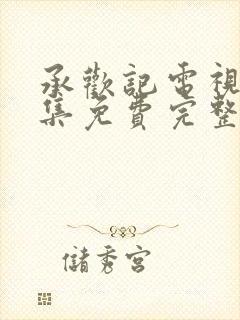 承歡記電視
集免費完整
儲秀宮